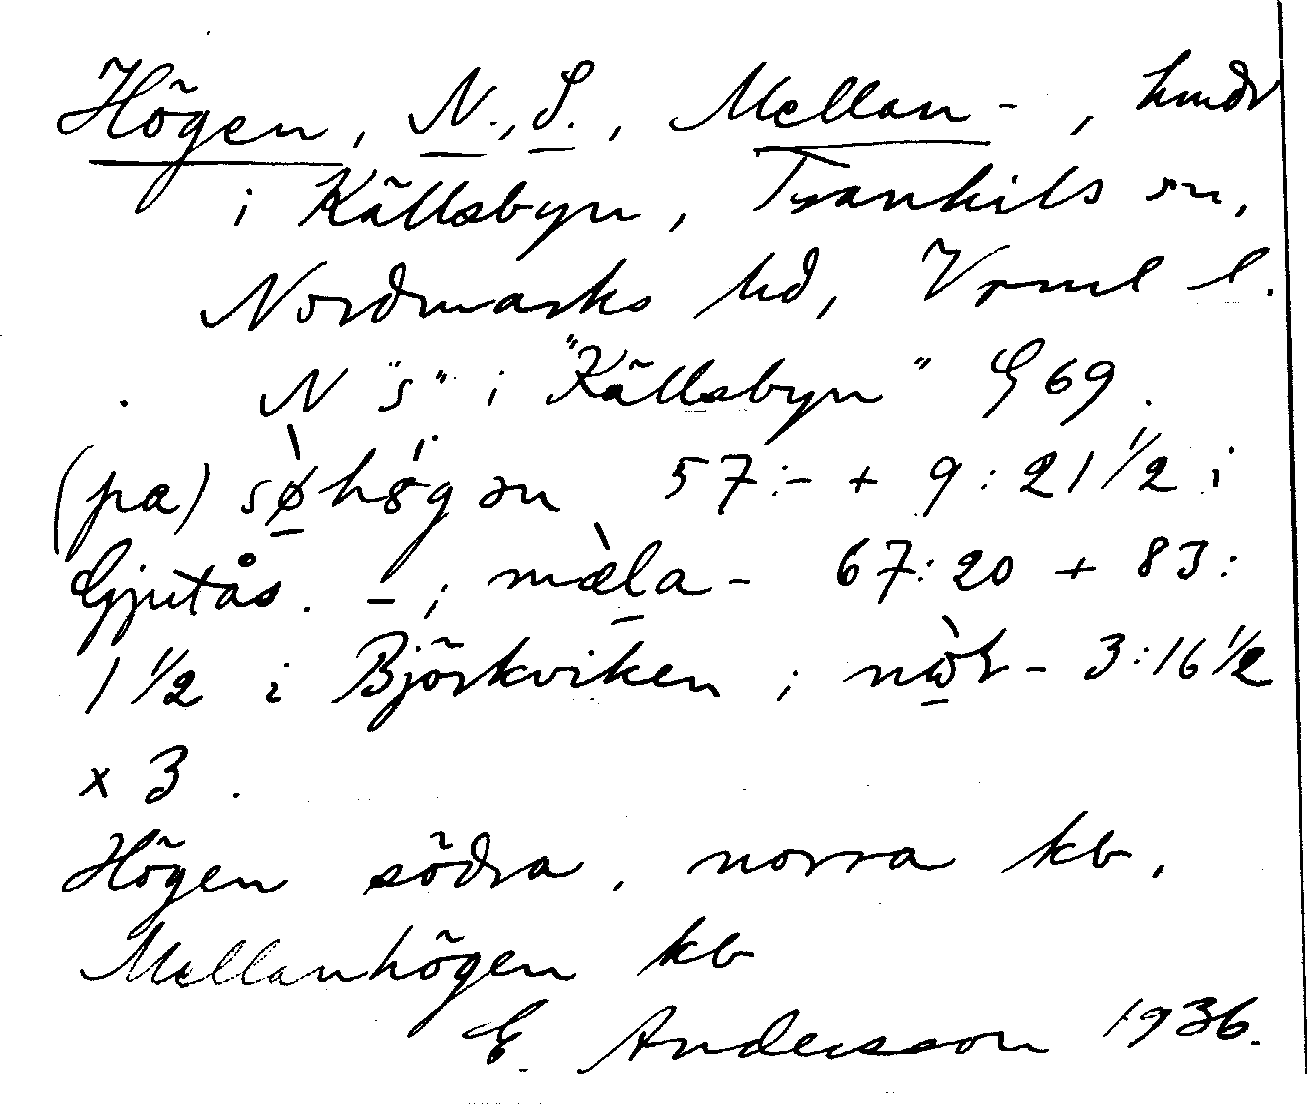 Högen, N., S., Mellan-, hmdr
i Källsbyn, Trankils sn,
Nordmarks hd, Vrml l.
N "S" i "Källsbyn" G 69.
(pa) sø̀hög ən 57:- + 9:21 1/2 i
Gjutås. - ; mæ̀la- 67:20 + 83:
1 1/2 i Björkviken ; 3:16 1/2
x 3.
Högen södra, norra kb,
Mellanhögen kb
E. Andersson 1936.